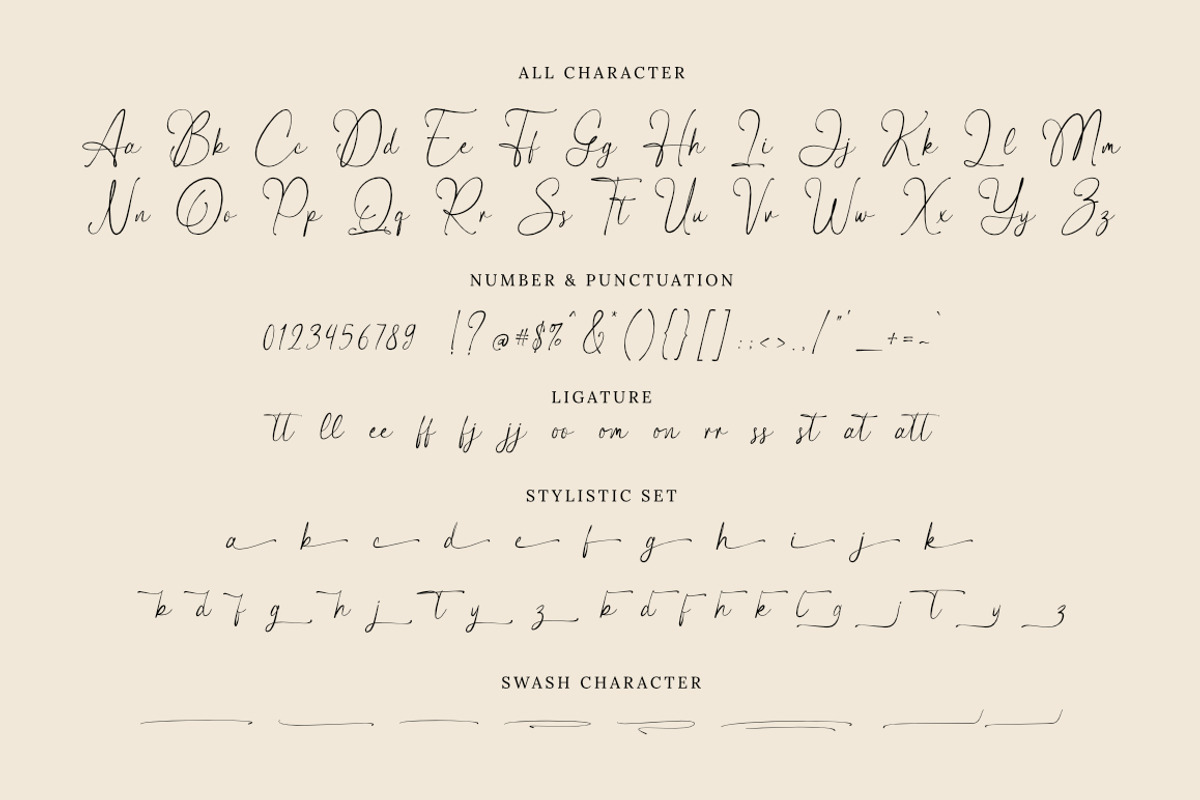 ALL CHARACTER
Aa Bb Cc Dd Ee Ff Gg Hh Ii Jj Kk Ll Mm
Nn Oo Pp Qq Rr Ss Tt Uu Vv Ww Xx Yy Zz
NUMBER & PUNCTUATION
0123456789 !?@#$%^&*(){}[]:;<>.,/"'_+=~`
LIGATURE
tt ll ee ff fj jj oo om on rr ss st at att
STYLISTIC SET
a b c d e f g h i j k
b d f g h j t y z b d f h k l g j t y z
SWASH CHARACTER